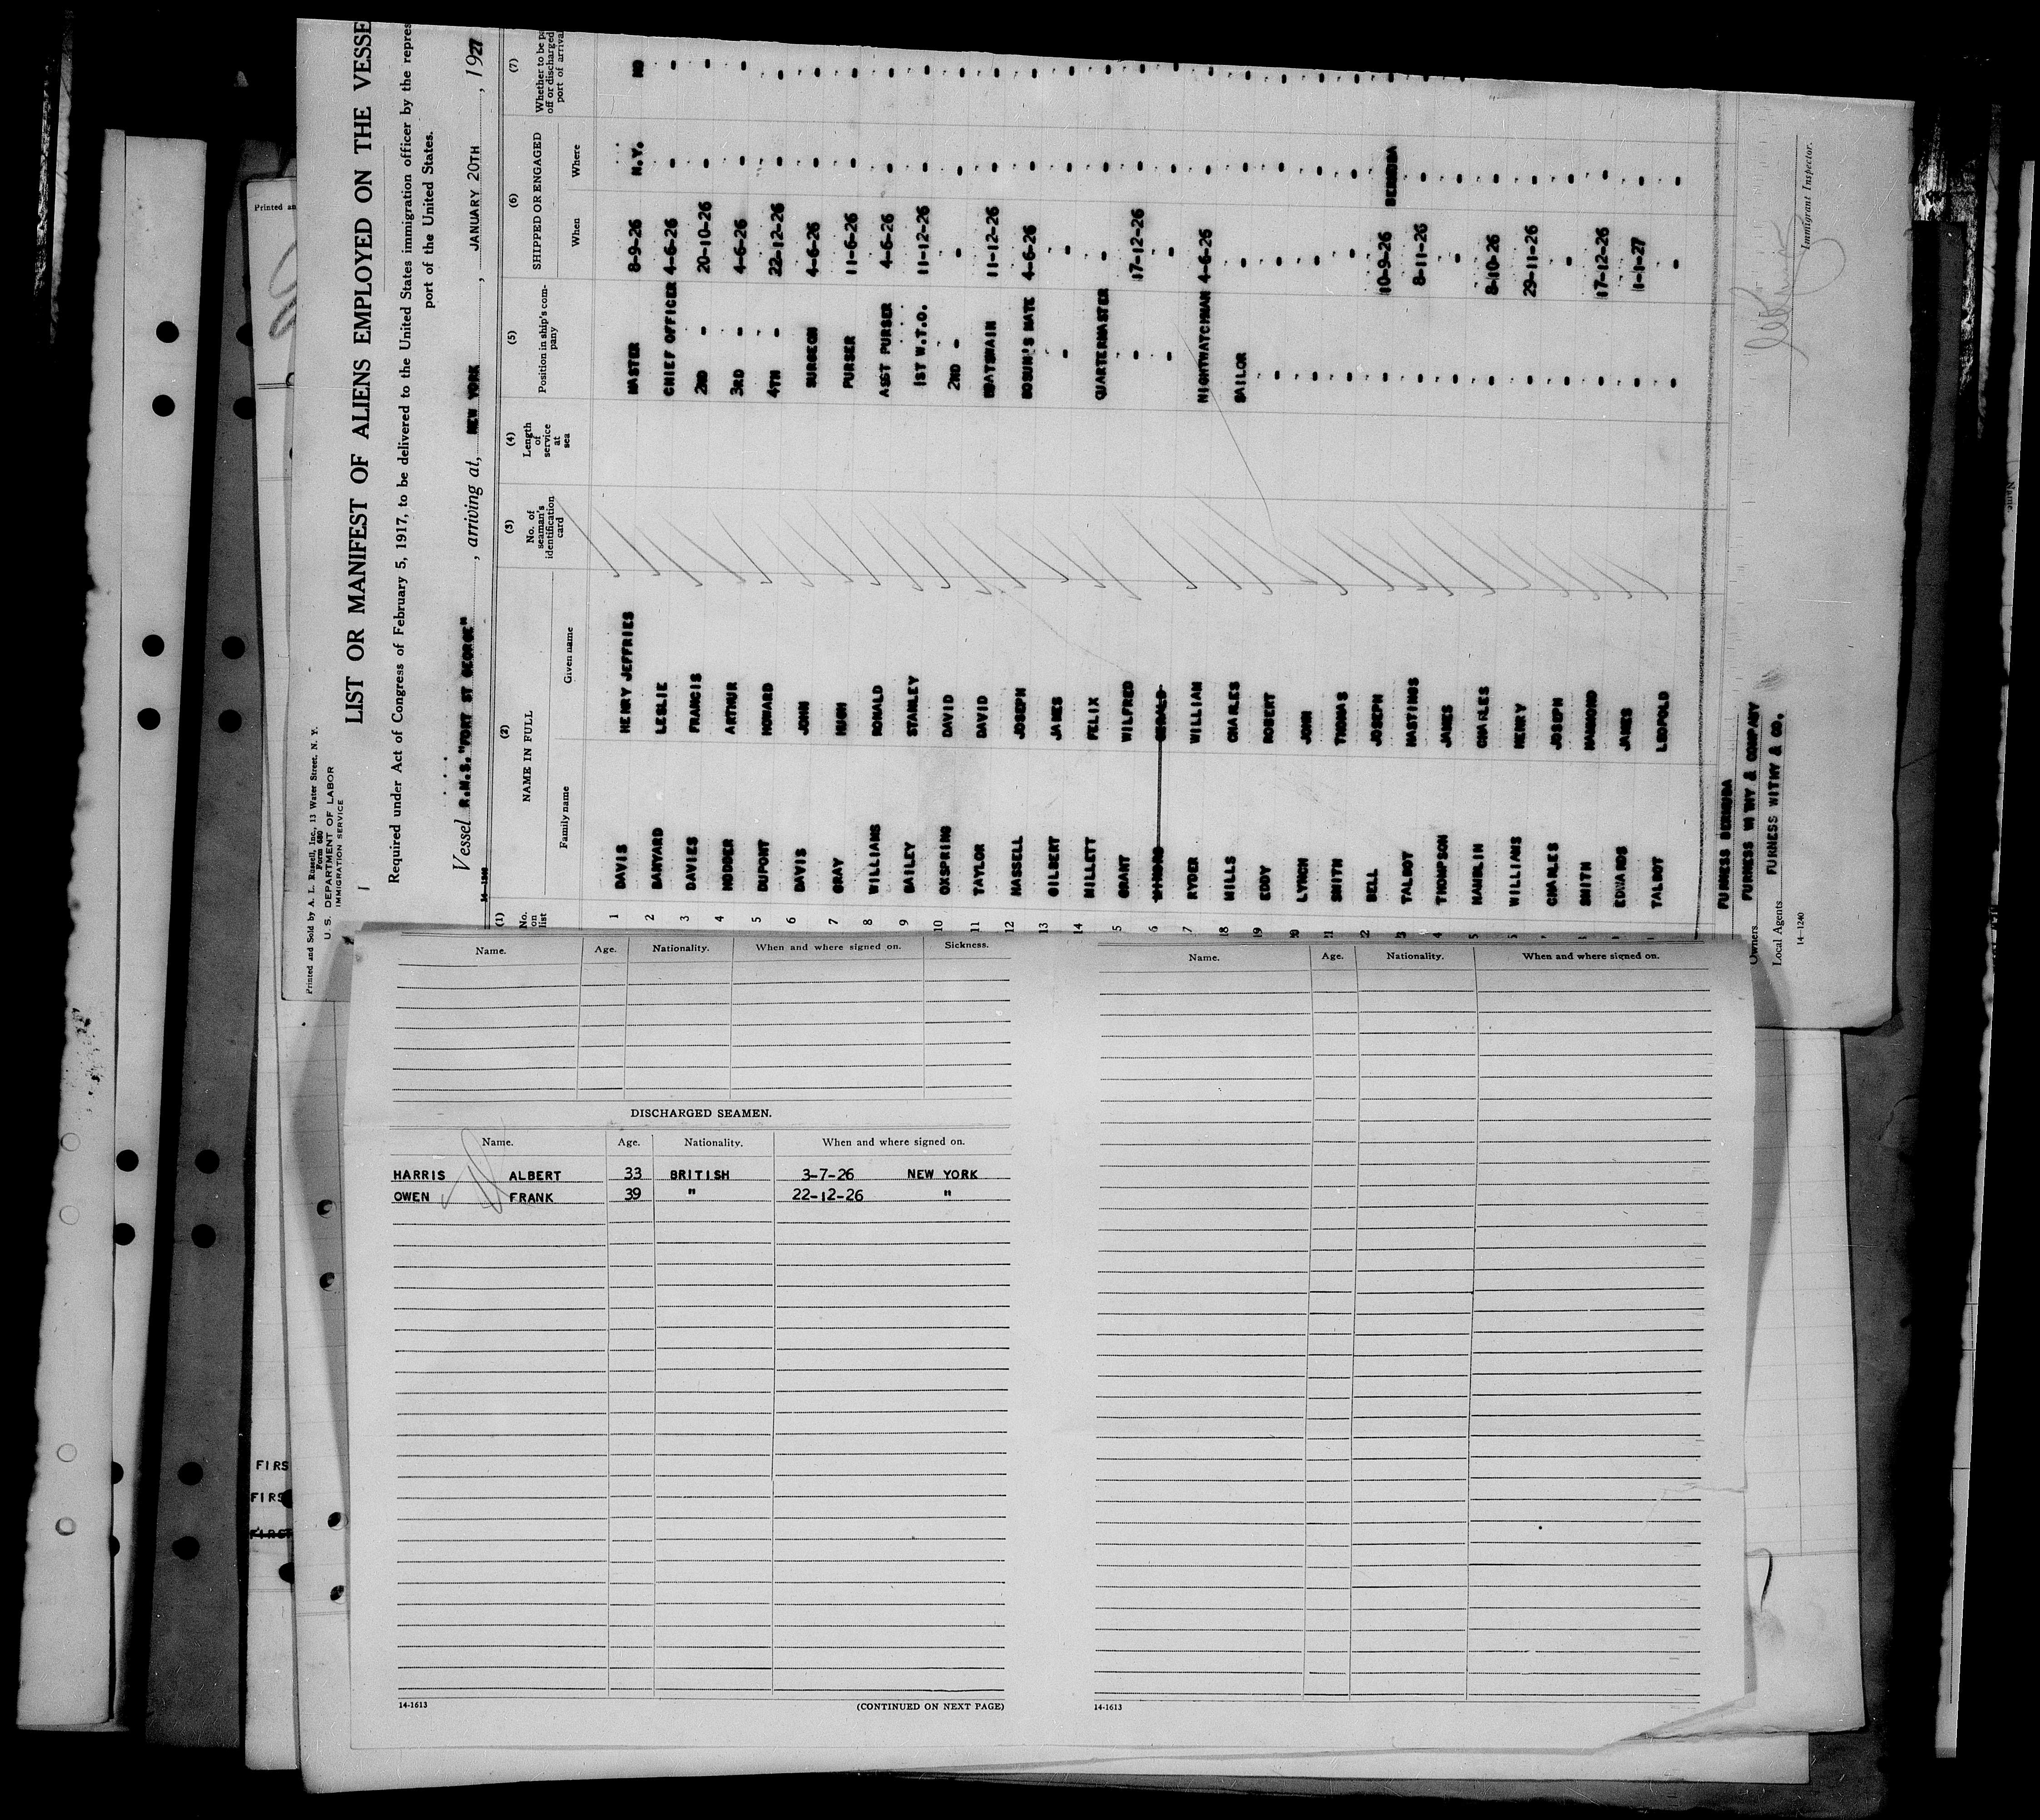 Printed and Sold by A. L. Russell, Inc., 13 Water Street, N. Y.
Form 680
U. S. DEPARTMENT OF LABOR
IMMIGRATION SERVICE
LIST OR MANIFEST OF ALIENS EMPLOYED ON THE VESSE
Required under Act of Congress of February 5, 1917, to be delivered to the United States immigration officer by the repres
port of the United States.
Vessel R.M.S. "FORT ST GEORGE", arriving at, NEW YORK, JANUARY 20TH, 1927
(1) (2) (3) (4) (5) (6) (7)
No. on list NAME IN FULL No. of seaman's identification card Length of service at sea Position in ship's company SHIPPED OR ENGAGED Whether to be pa off or discharged port of arrival
Family name Given name When Where
1 DAVIS HENRY JEFFRIES MASTER 8-9-26 N.Y. NO
2 BANYARD LESLIE CHIEF OFFICER 4-6-26 " "
3 DAVIES FRANCIS 2ND " 20-10-26 " "
4 HODDER ARTHUR 3RD " 4-6-26 " "
5 DUPONT HOWARD 4TH " 22-12-26 " "
6 DAVIS JOHN SURGEON 4-6-26 " "
7 GRAY HUGH PURSER 11-6-26 " "
8 WILLIAMS RONALD ASST PURSER 4-6-26 " "
9 BAILEY STANLEY 1ST W.T.O. 11-12-26 " "
10 OXSPRING DAVID 2ND " " " "
11 TAYLOR DAVID BOATSWAIN 11-12-26 " "
12 MASSELL JOSEPH BOSUN'S MATE 4-6-26 " "
13 GILBERT JAMES " " " "
14 MILLETT FELIX QUARTERMASTER " " "
5 GRANT WILFRED " 17-12-26 " "
6 " " " "
7 RYDER WILLIAM NIGHTWATCHMAN 4-6-26 " "
18 MILLS CHARLES SAILOR " " "
19 EDDY ROBERT " " " "
20 LYNCH JOHN " " " "
21 SMITH THOMAS " " " "
22 BELL JOSEPH " 10-9-26 BERMUDA "
3 TALBOT HASTINGS " 8-11-26 " "
4 THOMPSON JAMES " " " "
5 HAMBLIN CHARLES " 8-10-26 "
WILLIAMS HENRY " 29-11-26 "
CHARLES JOSEPH " " "
SMITH HAMMOND " 17-12-26 "
EDWARDS JAMES " 1-1-27 "
TALBOT LEOPOLD " " "
FURNESS BERMUDA
Owners FURNESS WITHY & COMPANY
Local Agents FURNESS WITHY & CO.
14-1240
Immigrant Inspector.
Name. Age. Nationality. When and where signed on. Sickness.
DISCHARGED SEAMEN.
Name. Age. Nationality. When and where signed on.
HARRIS ALBERT 33 BRITISH 3-7-26 NEW YORK
OWEN FRANK 39 " 22-12-26 "
14-1613 (CONTINUED ON NEXT PAGE)
Name. Age. Nationality. When and where signed on.
14-1613
Printed an
FIRS
FIRS
FIRST
Name.